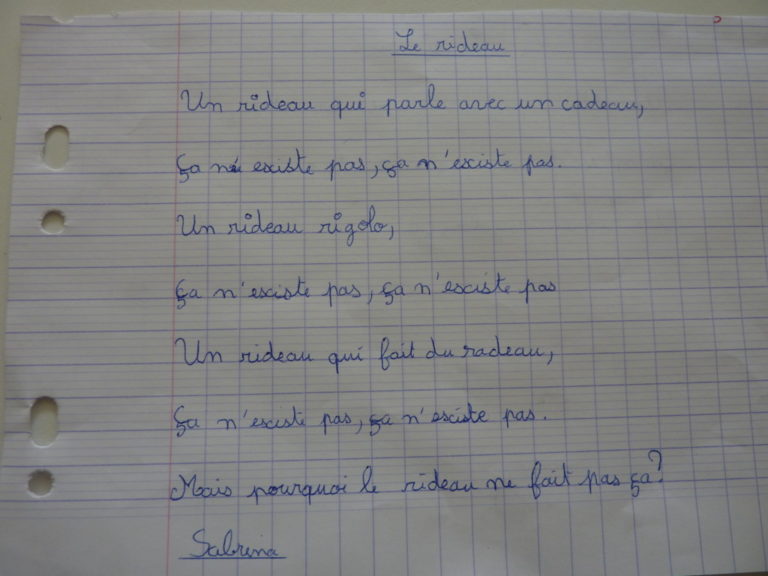 Le rideau
Un rideau qui parle avec un cadeau,
ça né existe pas, ça n'existe pas.
Un rideau rigolo,
ça n'existe pas, ça n'existe pas
Un rideau qui fait du radeau,
ça n'existe pas, ça n'existe pas.
Mais pourquoi le rideau ne fait pas ça?
Sabrina